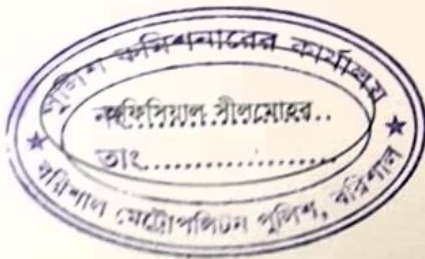 পুলিশ কমিশনারের কার্যালয়
অফিসিয়াল সীলমোহর..
তাং....................
বরিশাল মেট্রোপলিটন পুলিশ, বরিশাল